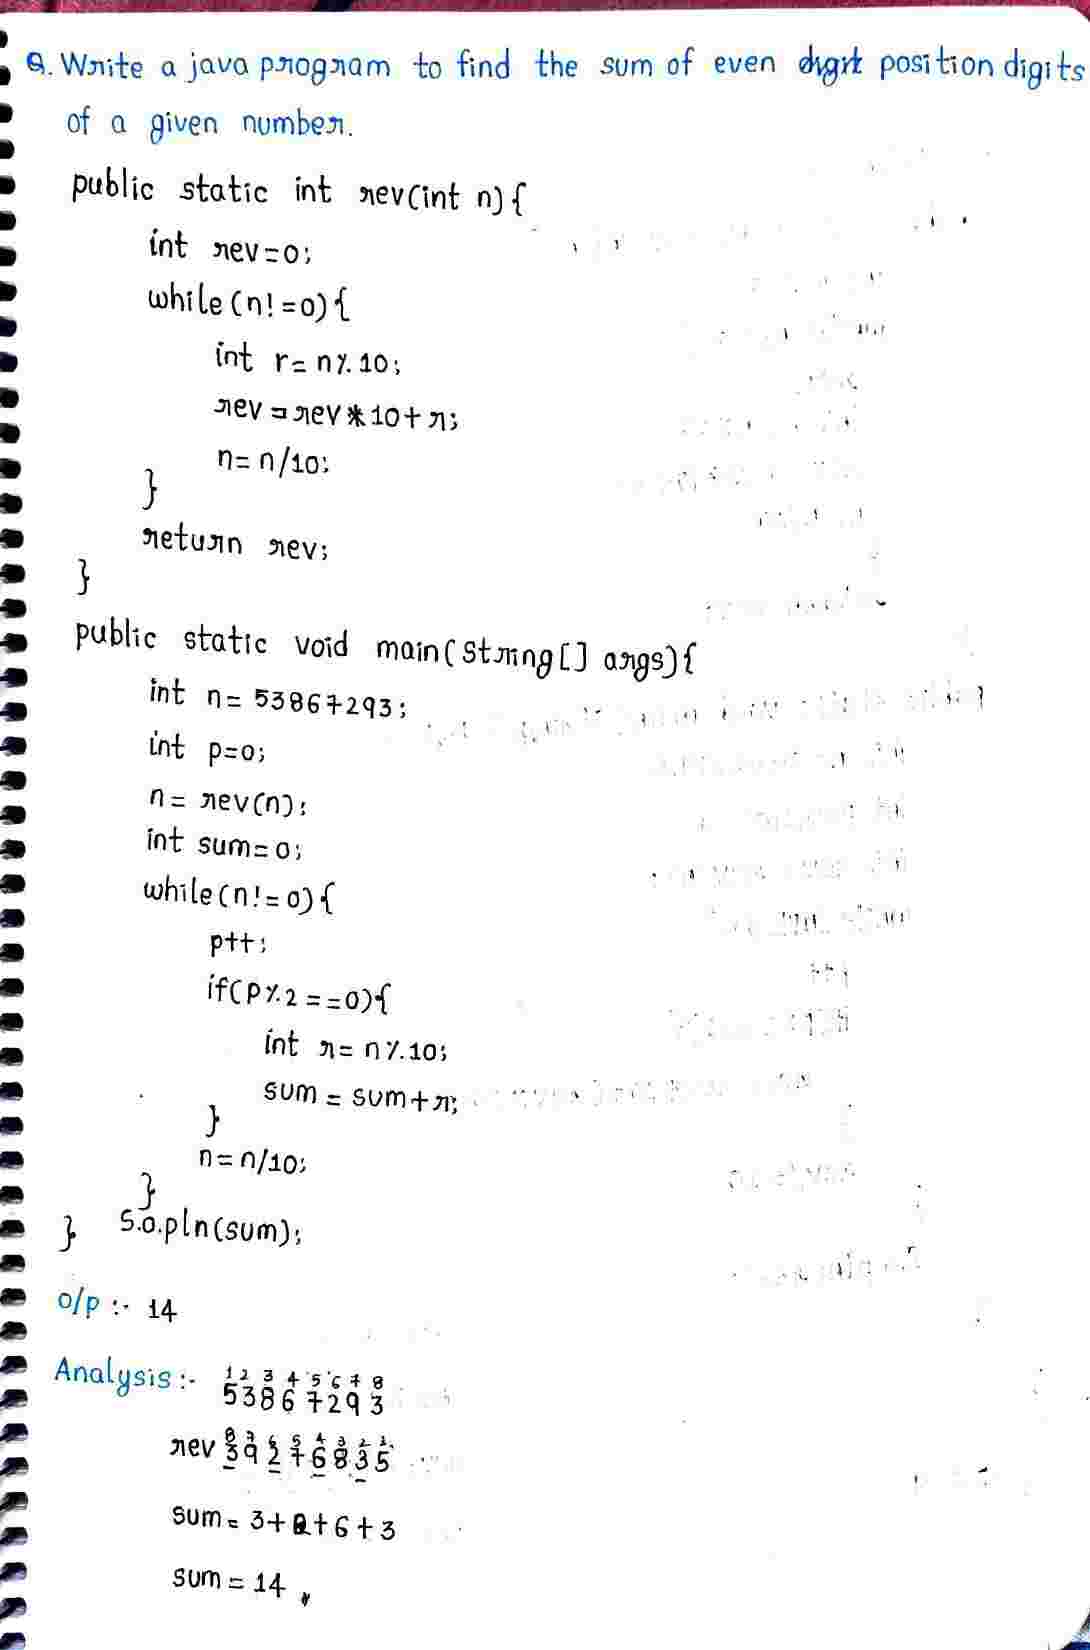 Q. Write a java program to find the sum of even position digits
of a given number.
public static int rev(int n){
int rev=0;
while(n!=0){
int r= n%10;
rev=rev*10+r;
n= n/10;
}
return rev;
}
public static void main(String[] args){
int n= 53867293;
int p=0;
n= rev(n);
int sum=0;
while(n!=0){
p++;
if(p%2==0){
int r= n%10;
sum = sum+r;
}
n=n/10;
}
} S.o.pln(sum);
o/p :- 14
Analysis:- 1 2 3 4 5 6 7 8
53867293
8 7 6 5 4 3 2 1
rev 39276835
sum= 3+2+6+3
sum = 14